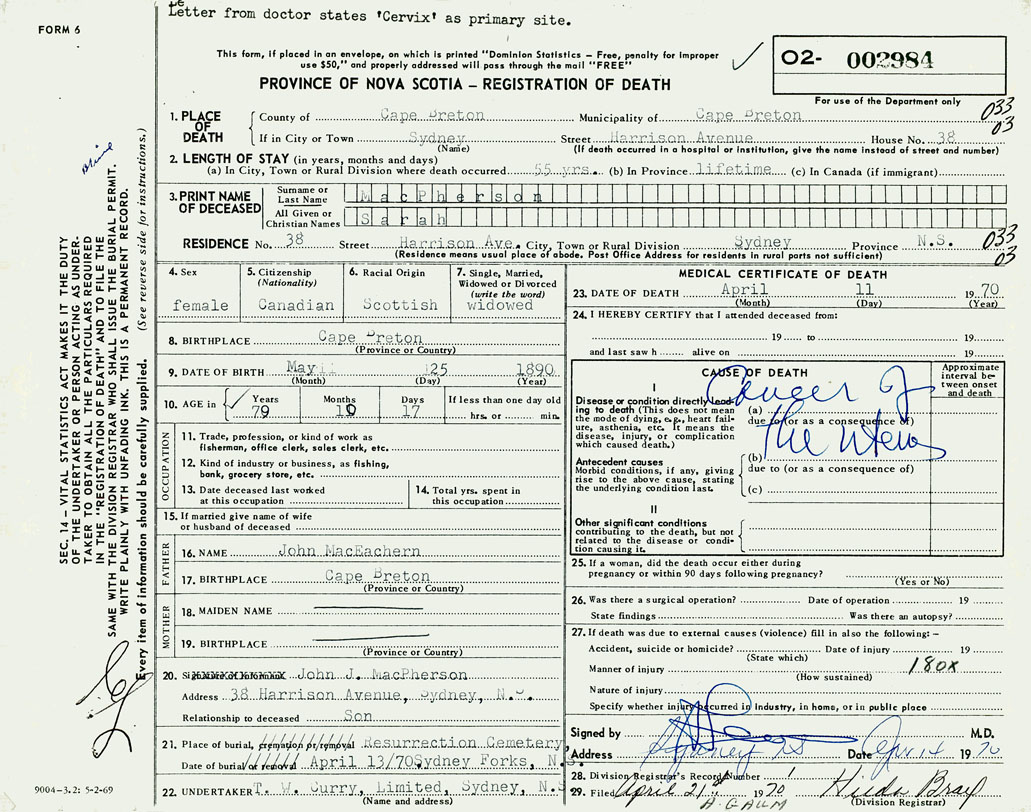 Letter from doctor states 'Cervix' as primary site.
FORM 6
This form, if placed in an envelope, on which is printed "Dominion Statistics – Free, penalty for improper
use $50," and properly addressed will pass through the mail "FREE"
O2- 002984
For use of the Department only
PROVINCE OF NOVA SCOTIA – REGISTRATION OF DEATH
033
03
1. PLACE OF DEATH
County of Cape Breton Municipality of Cape Breton
If in City or Town Sydney Street Harrison Avenue House No. 38
(Name) (If death occurred in a hospital or institution, give the name instead of street and number)
2. LENGTH OF STAY (in years, months and days)
(a) In City, Town or Rural Division where death occurred 55 yrs. (b) In Province lifetime (c) In Canada (if immigrant)
3. PRINT NAME OF DECEASED
Surname or Last Name MacPherson
All Given or Christian Names Sarah
RESIDENCE No. 38 Street Harrison Ave. City, Town or Rural Division Sydney Province N.S. 033
(Residence means usual place of abode. Post Office Address for residents in rural parts not sufficient) 03
4. Sex
female
5. Citizenship
(Nationality)
Canadian
6. Racial Origin
Scottish
7. Single, Married,
Widowed or Divorced
(write the word)
widowed
8. BIRTHPLACE Cape Breton
(Province or Country)
9. DATE OF BIRTH May 25 1890
(Month) (Day) (Year)
10. AGE in Years Months Days If less than one day old
79 10 17 hrs. or min.
OCCUPATION
11. Trade, profession, or kind of work as
fisherman, office clerk, sales clerk, etc.
12. Kind of industry or business, as fishing,
bank, grocery store, etc.
13. Date deceased last worked
at this occupation
14. Total yrs. spent in
this occupation
15. If married give name of wife
or husband of deceased
FATHER
16. NAME John MacEachern
17. BIRTHPLACE Cape Breton
(Province or Country)
MOTHER
18. MAIDEN NAME
19. BIRTHPLACE
(Province or Country)
20. Signature of Informant John J. MacPherson
Address 38 Harrison Avenue, Sydney, N.S.
Relationship to deceased Son
21. Place of burial, cremation or removal Resurrection Cemetery,
Date of burial or removal April 13/70 Sydney Forks, N.S.
22. UNDERTAKER T. W. Curry, Limited, Sydney, N.S
(Name and address)
MEDICAL CERTIFICATE OF DEATH
23. DATE OF DEATH April 11 1970
(Month) (Day) (Year)
24. I HEREBY CERTIFY that I attended deceased from:
19 to 19
and last saw h alive on 19
CAUSE OF DEATH
Approximate
interval be-
tween onset
and death
I
Disease or condition directly lead-
ing to death (This does not mean
the mode of dying, e.g., heart fail-
ure, asthenia, etc. It means the
disease, injury, or complication
which caused death.)
(a) Cancer of
due to (or as a consequence of)
the uterus
Antecedent causes
Morbid conditions, if any, giving
rise to the above cause, stating
the underlying condition last.
(b)
due to (or as a consequence of)
(c)
II
Other significant conditions
contributing to the death, but not
related to the disease or condi-
tion causing it.
25. If a woman, did the death occur either during
pregnancy or within 90 days following pregnancy?
(Yes or No)
26. Was there a surgical operation? Date of operation 19
State findings Was there an autopsy?
27. If death was due to external causes (violence) fill in also the following: –
Accident, suicide or homicide? Date of injury 19
(State which)
Manner of injury 180x
(How sustained)
Nature of injury
Specify whether injury occurred in industry, in home, or in public place
Signed by M.D.
Address Sydney NS Date Apr 14 1970
28. Division Registrar's Record Number 1
29. Filed April 21 1970 Hilda Bray
A. GAUM (Division Registrar)
SEC. 14 – VITAL STATISTICS ACT MAKES IT THE DUTY
OF THE UNDERTAKER OR PERSON ACTING AS UNDER-
TAKER TO OBTAIN ALL THE PARTICULARS REQUIRED
IN THE "REGISTRATION OF DEATH" AND TO FILE THE
SAME WITH THE DIVISION REGISTRAR WHO SHALL ISSUE THE BURIAL PERMIT.
WRITE PLAINLY WITH UNFADING INK. THIS IS A PERMANENT RECORD.
Every item of information should be carefully supplied. (See reverse side for instructions.)
9004-3.2: 5-2-69